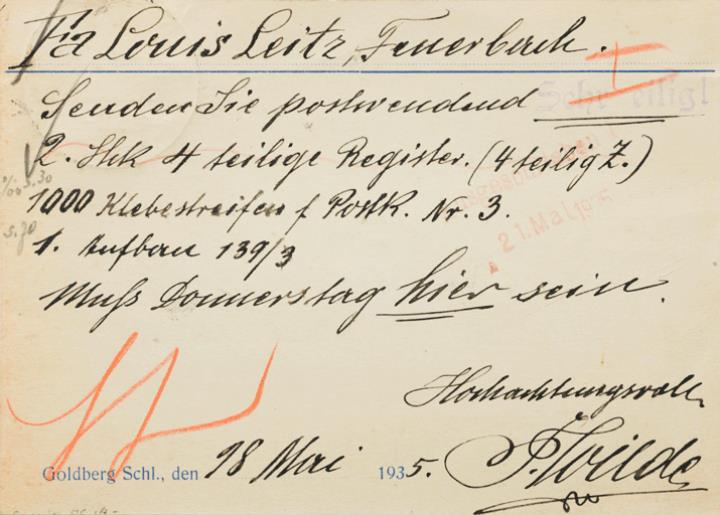 Fa Louis Leitz, Feuerbach.
Senden Sie postwendend Sehr eilig!
2. Stk 4 teilige Register. (4 teilig Z.)
1000 Klebestreifen f Postk. Nr. 3.
1. Aufbau 139/3
21. Mai 1935
Muss Donnerstag hier sein.
Hochachtungsvoll
F. Wilde
Goldberg Schl., den 18 Mai 1935.